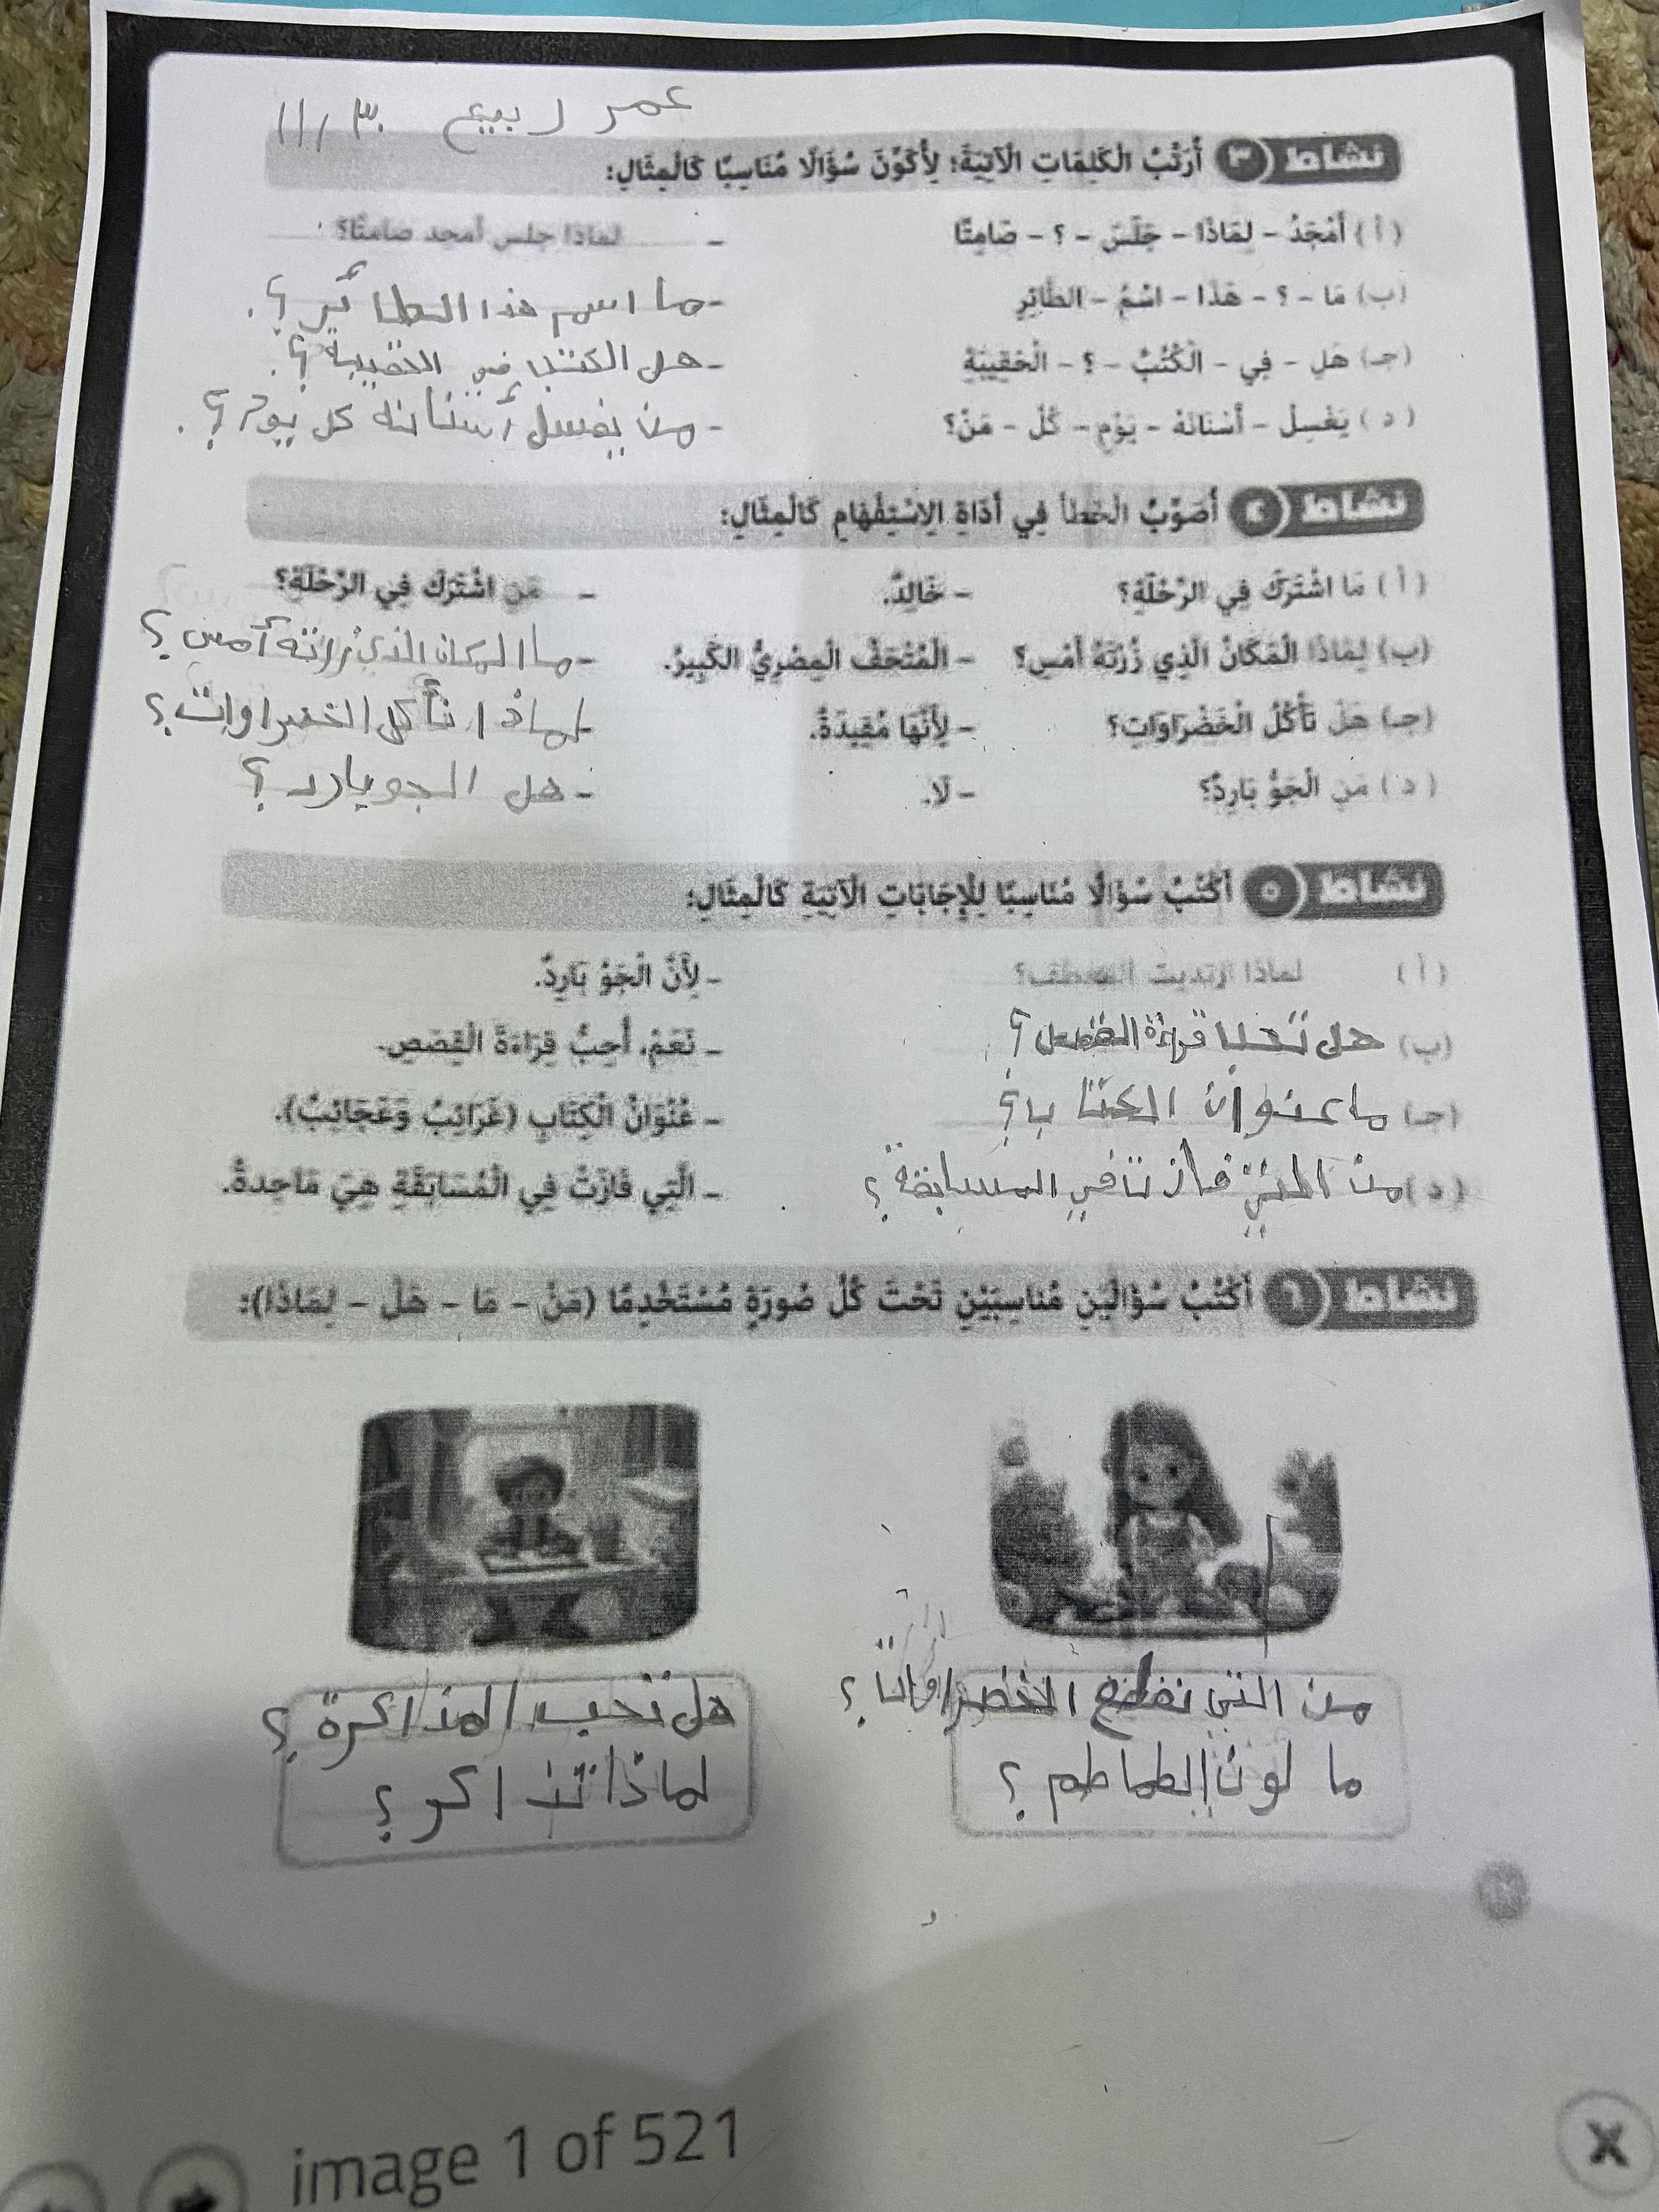 عمر ربيع ٣٠/١١
نشاط ٣ أُرَتِّبُ الْكَلِمَاتِ الْآتِيَةَ؛ لِأُكَوِّنَ سُؤَالًا مُنَاسِبًا كَالْمِثَالِ:
(أ) أَمْجَدُ - لِمَاذَا - جَلَسَ - ؟ - صَامِتًا - لماذا جلس أمجد صامتًا؟
(ب) مَا - ؟ - هَذَا - اسْمُ - الطَّائِرِ - ما اسم هذا الطائر؟.
(جـ) هَلِ - فِي - الْكُتُبُ - ؟ - الْحَقِيبَةِ - هل الكتب في الحقيبة؟.
(د) يَغْسِلُ - أَسْنَانَهُ - يَوْمٍ - كُلَّ - مَنْ؟ - من يغسل أسنانه كل يوم؟.
نشاط ٤ أُصَوِّبُ الْخَطَأَ فِي أَدَاةِ الِاسْتِفْهَامِ كَالْمِثَالِ:
(أ) مَا اشْتَرَكَ فِي الرِّحْلَةِ؟ - خَالِدٌ. - مَنِ اشْتَرَكَ فِي الرِّحْلَةِ؟
(ب) لِمَاذَا الْمَكَانُ الَّذِي زُرْتَهُ أَمْسِ؟ - الْمُتْحَفُ الْمِصْرِيُّ الْكَبِيرُ. - ما المكان الذي زرته أمس؟
(جـ) هَلْ نَأْكُلُ الْخَضْرَاوَاتِ؟ - لِأَنَّهَا مُفِيدَةٌ. - لماذا نأكل الخضراوات؟
(د) مَنِ الْجَوُّ بَارِدٌ؟ - لَا. - هل الجو بارد؟
نشاط ٥ أَكْتُبُ سُؤَالًا مُنَاسِبًا لِلْإِجَابَاتِ الْآتِيَةِ كَالْمِثَالِ:
(أ) لماذا ارتديت المعطف؟ - لِأَنَّ الْجَوَّ بَارِدٌ.
(ب) هل تحب قراءة القصص؟ - نَعَمْ، أُحِبُّ قِرَاءَةَ الْقِصَصِ.
(جـ) ما عنوان الكتاب؟ - عُنْوَانُ الْكِتَابِ (غَرَائِبُ وَعَجَائِبُ).
(د) من التي فازت في المسابقة؟ - الَّتِي فَازَتْ فِي الْمُسَابَقَةِ هِيَ مَاجِدَةُ.
نشاط ٦ أَكْتُبُ سُؤَالَيْنِ مُنَاسِبَيْنِ تَحْتَ كُلِّ صُورَةٍ مُسْتَخْدِمًا (مَنْ - مَا - هَلْ - لِمَاذَا):
من التي تقطع الخضراوات؟
ما لون الطماطم؟
هل تحب المذاكرة؟
لماذا تذاكر؟
image 1 of 521
X